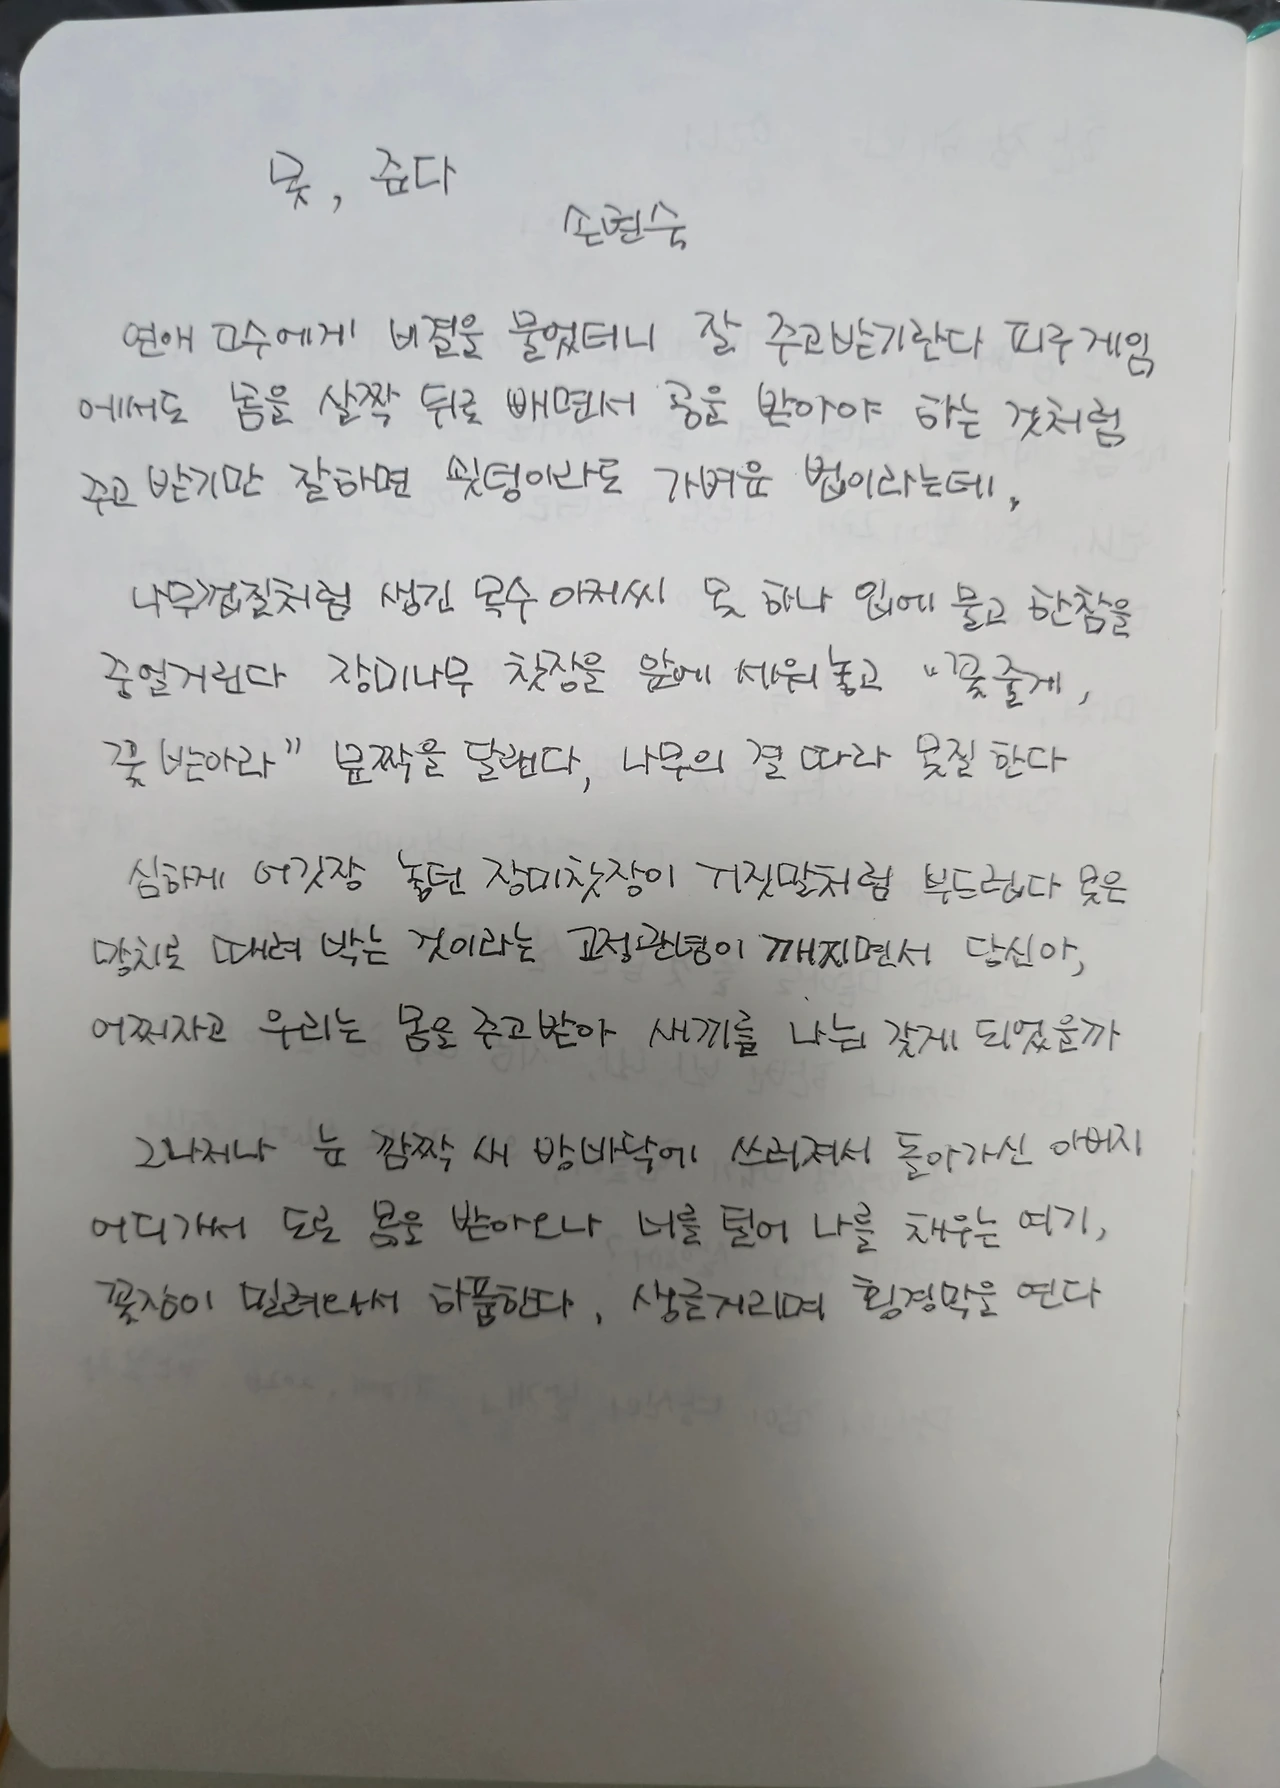 못, 준다
손현숙
연애 고수에게 비결을 물었더니 잘 주고받기란다 피구게임
에서도 몸을 살짝 뒤로 빼면서 공을 받아야 하는 것처럼
주고받기만 잘하면 쇳덩이라도 가벼운 법이라는데,
나무껍질처럼 생긴 목수 아저씨 못 하나 입에 물고 한참을
중얼거린다 장미나무 찻장을 앞에 세워놓고 "꽃줄게,
꽃 받아라" 문짝을 달랜다, 나무의 결 따라 못질 한다
심하게 어깃장 놓던 장미찻장이 거짓말처럼 부드럽다 못은
망치로 때려 박는 것이라는 고정관념이 깨지면서 당신아,
어쩌자고 우리는 몸을 주고받아 새끼를 나눠 갖게 되었을까
그나저나 눈 깜짝 새 방바닥에 쓰러져서 돌아가신 아버지
어디 가서 도로 몸을 받아오나 너를 털어 나를 채우는 여기,
꽃장이 밀려와서 하품한다, 생글거리며 횡경막을 연다